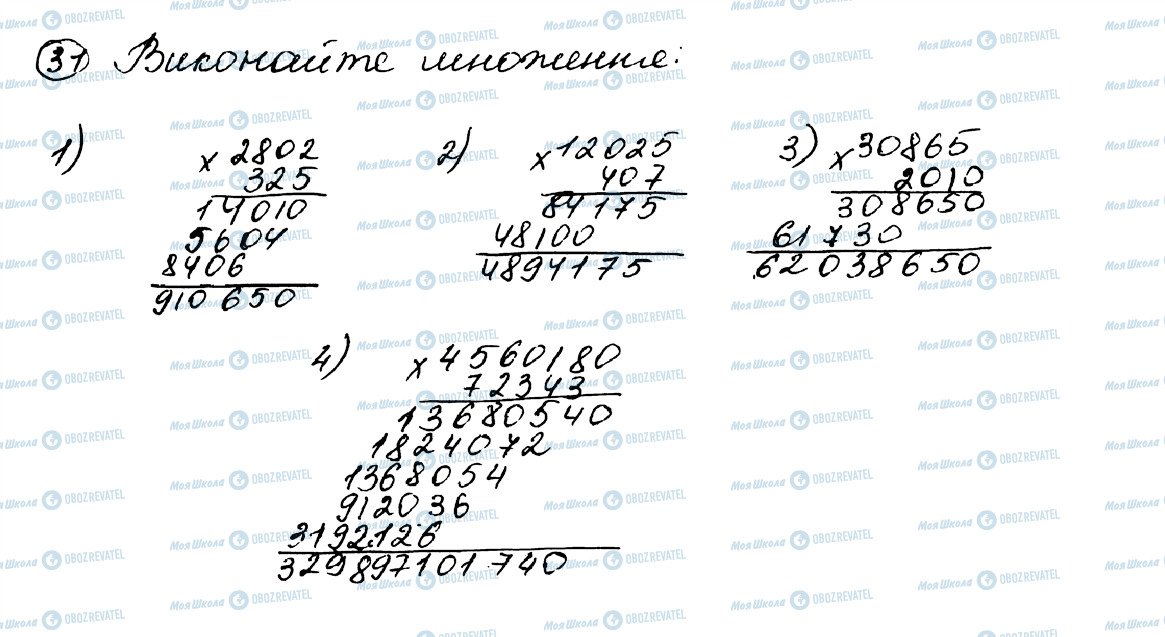 31 Виконайте множення:
1)
× 2802
325
14010
5604
8406
910650
2)
× 12025
407
84175
48100
4894175
3)
× 30865
2010
308650
61730
62038650
4)
× 4560180
72343
13680540
1824072
1368054
912036
3192126
329897101740